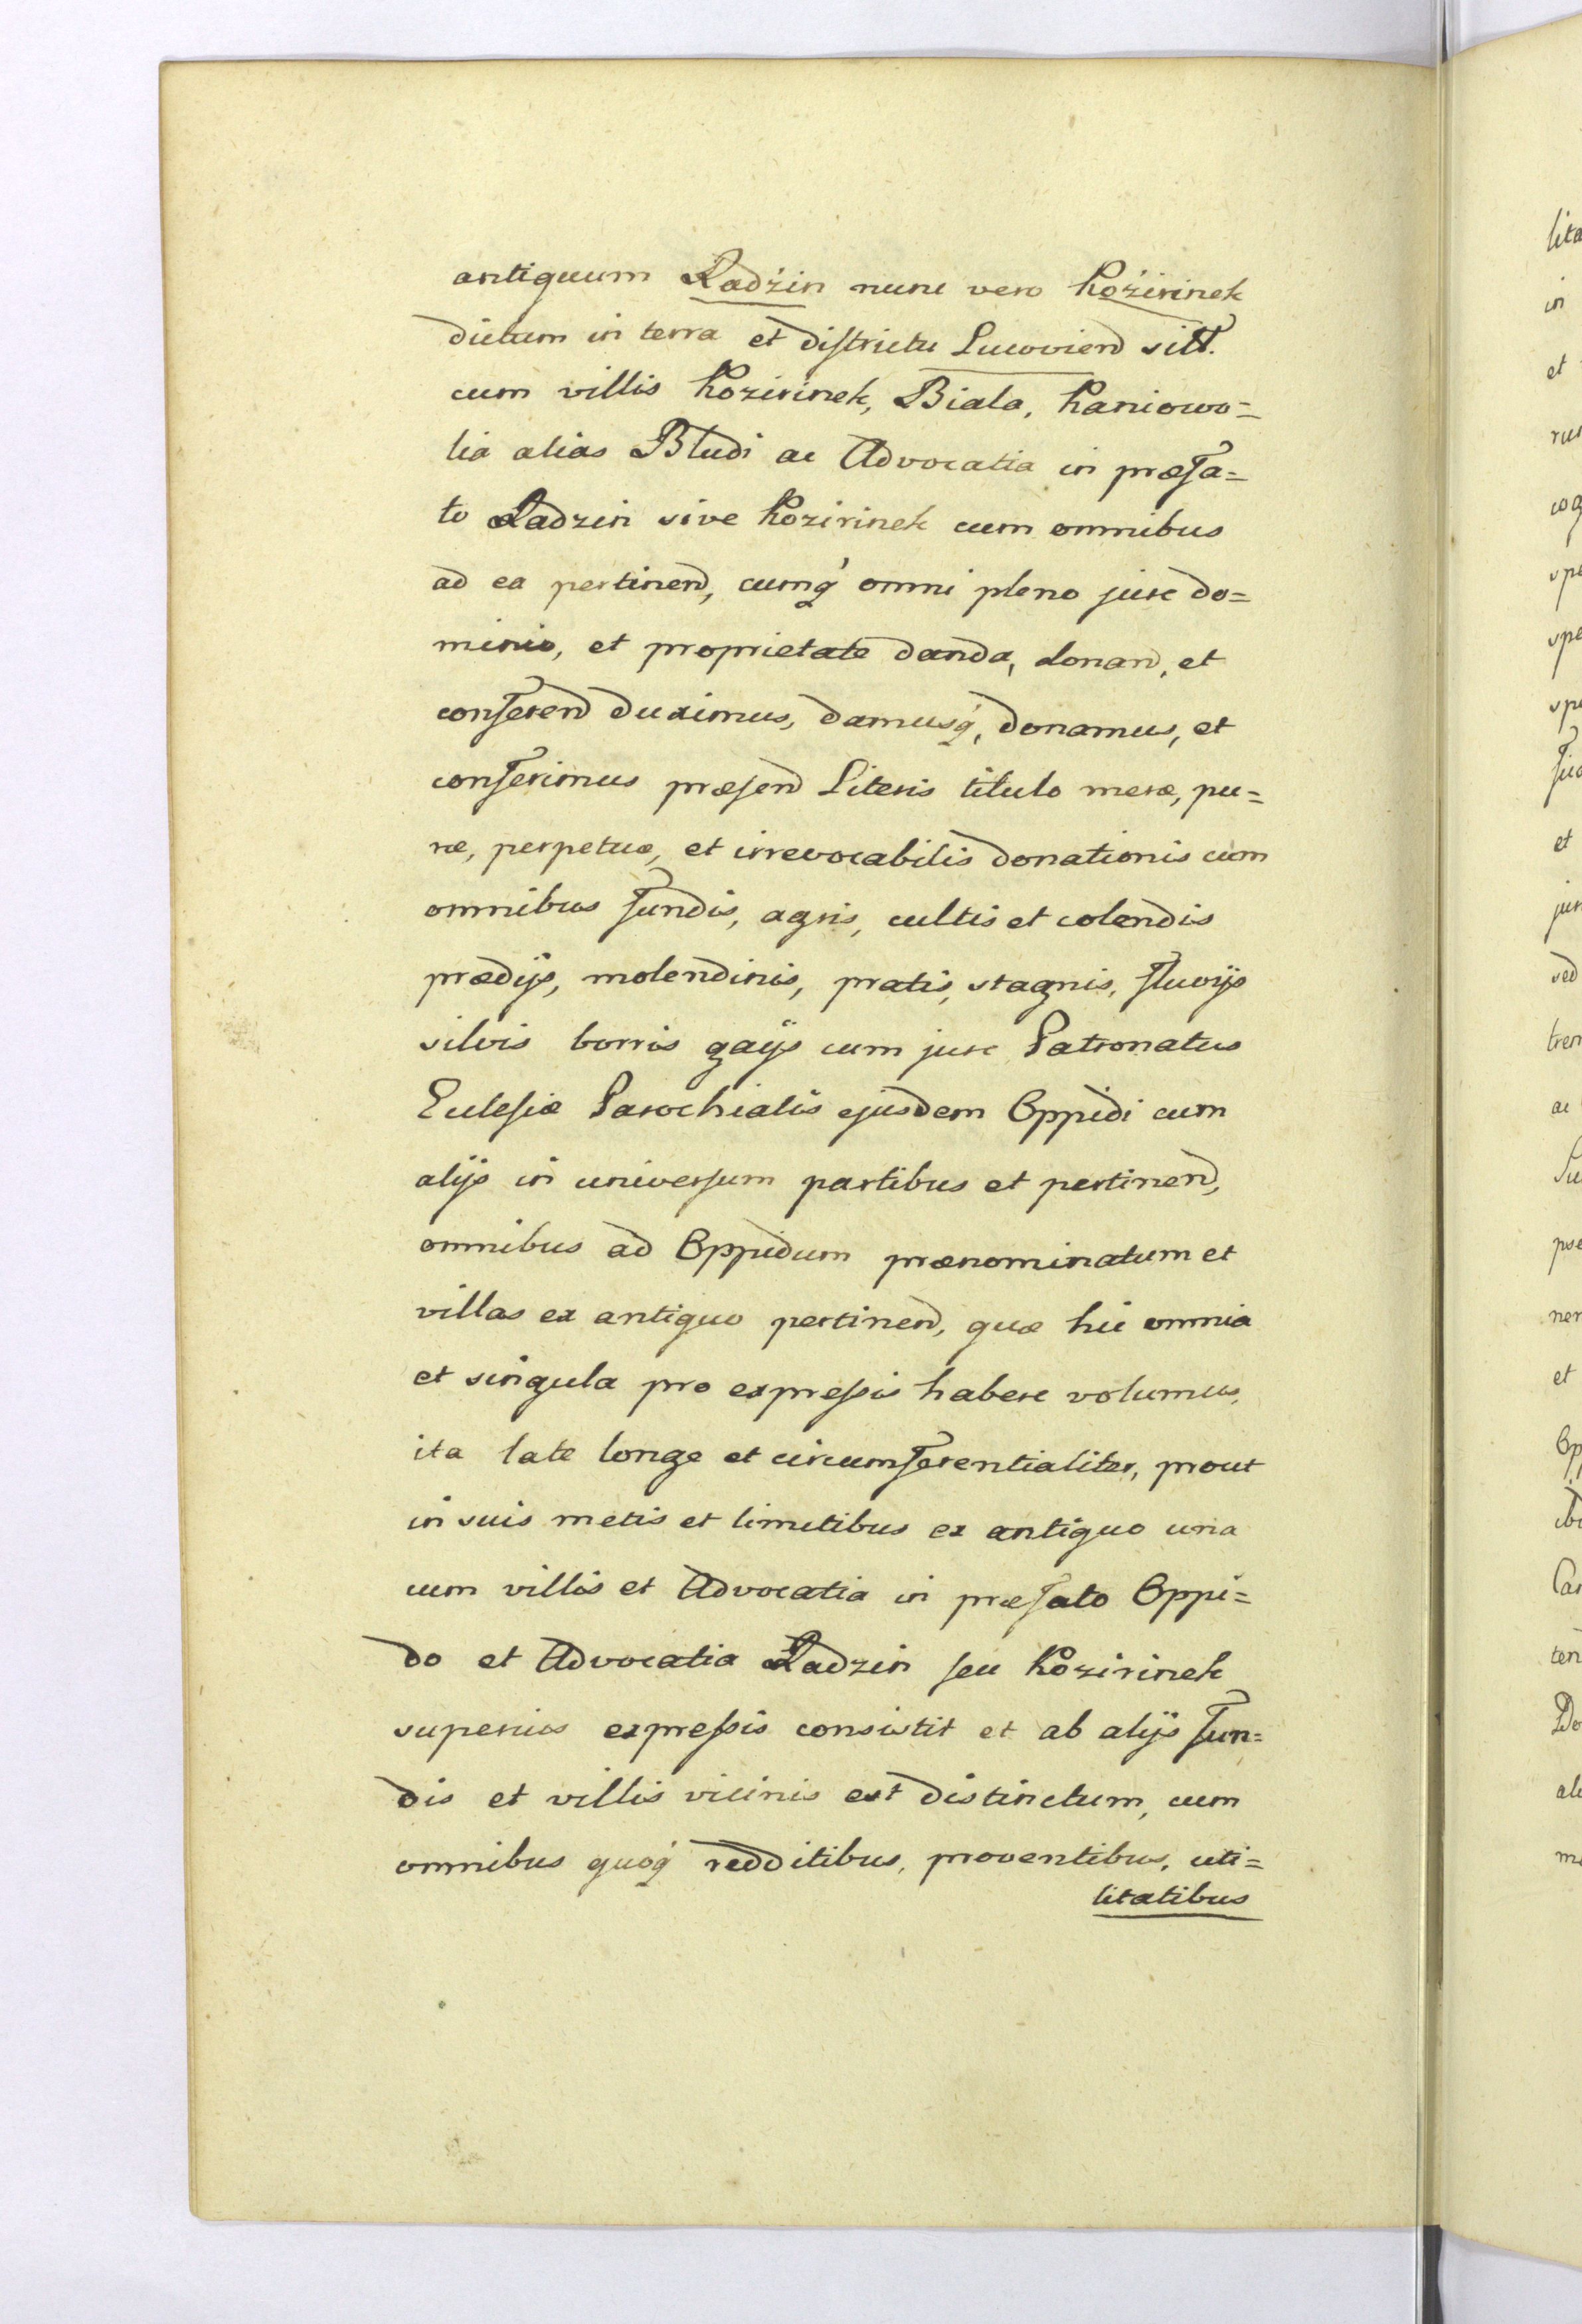 antiquum Radźin nunc vero Koźirinek
dictum in terra et districtu Lucoviend sitt.
cum villis Kozirinek, Biala, Kaniowo=
lia alias Bludi ac Advocatia in præfa=
to Radzin sive Kozirinek cum omnibus
ad ea pertinend, cumq' omni pleno jure do=
minio, et proprietate danda, donand, et
conferend duximus, damusq', donamus, et
conferimus præsend Literis titulo meræ, pu=
ræ, perpetuæ, et irrevocabilis donationis cum
omnibus fundis, agris, cultis et colendis
prædijs, molendinis, pratis, stagnis, fluvijs
silvis borris gaijs cum jure Patronatus
Eclesiæ Parochialis ejusdem Oppidi cum
alijs in universum partibus et pertinend,
omnibus ad Oppidum prænominatum et
villas ex antiquo pertinend, quæ hic omnia
et singula pro expressis habere volumus,
ita late longe et circumferentialiter, prout
in suis metis et limitibus ex antiquo una
cum villis et Advocatia in præfato Oppi=
do et Advocatia Radzin seu Kozirinek
superius expressis consistit et ab alijs fun=
dis et villis vicinis est distinctum, cum
omnibus quoq' redditibus, proventibus, uti=
litatibus